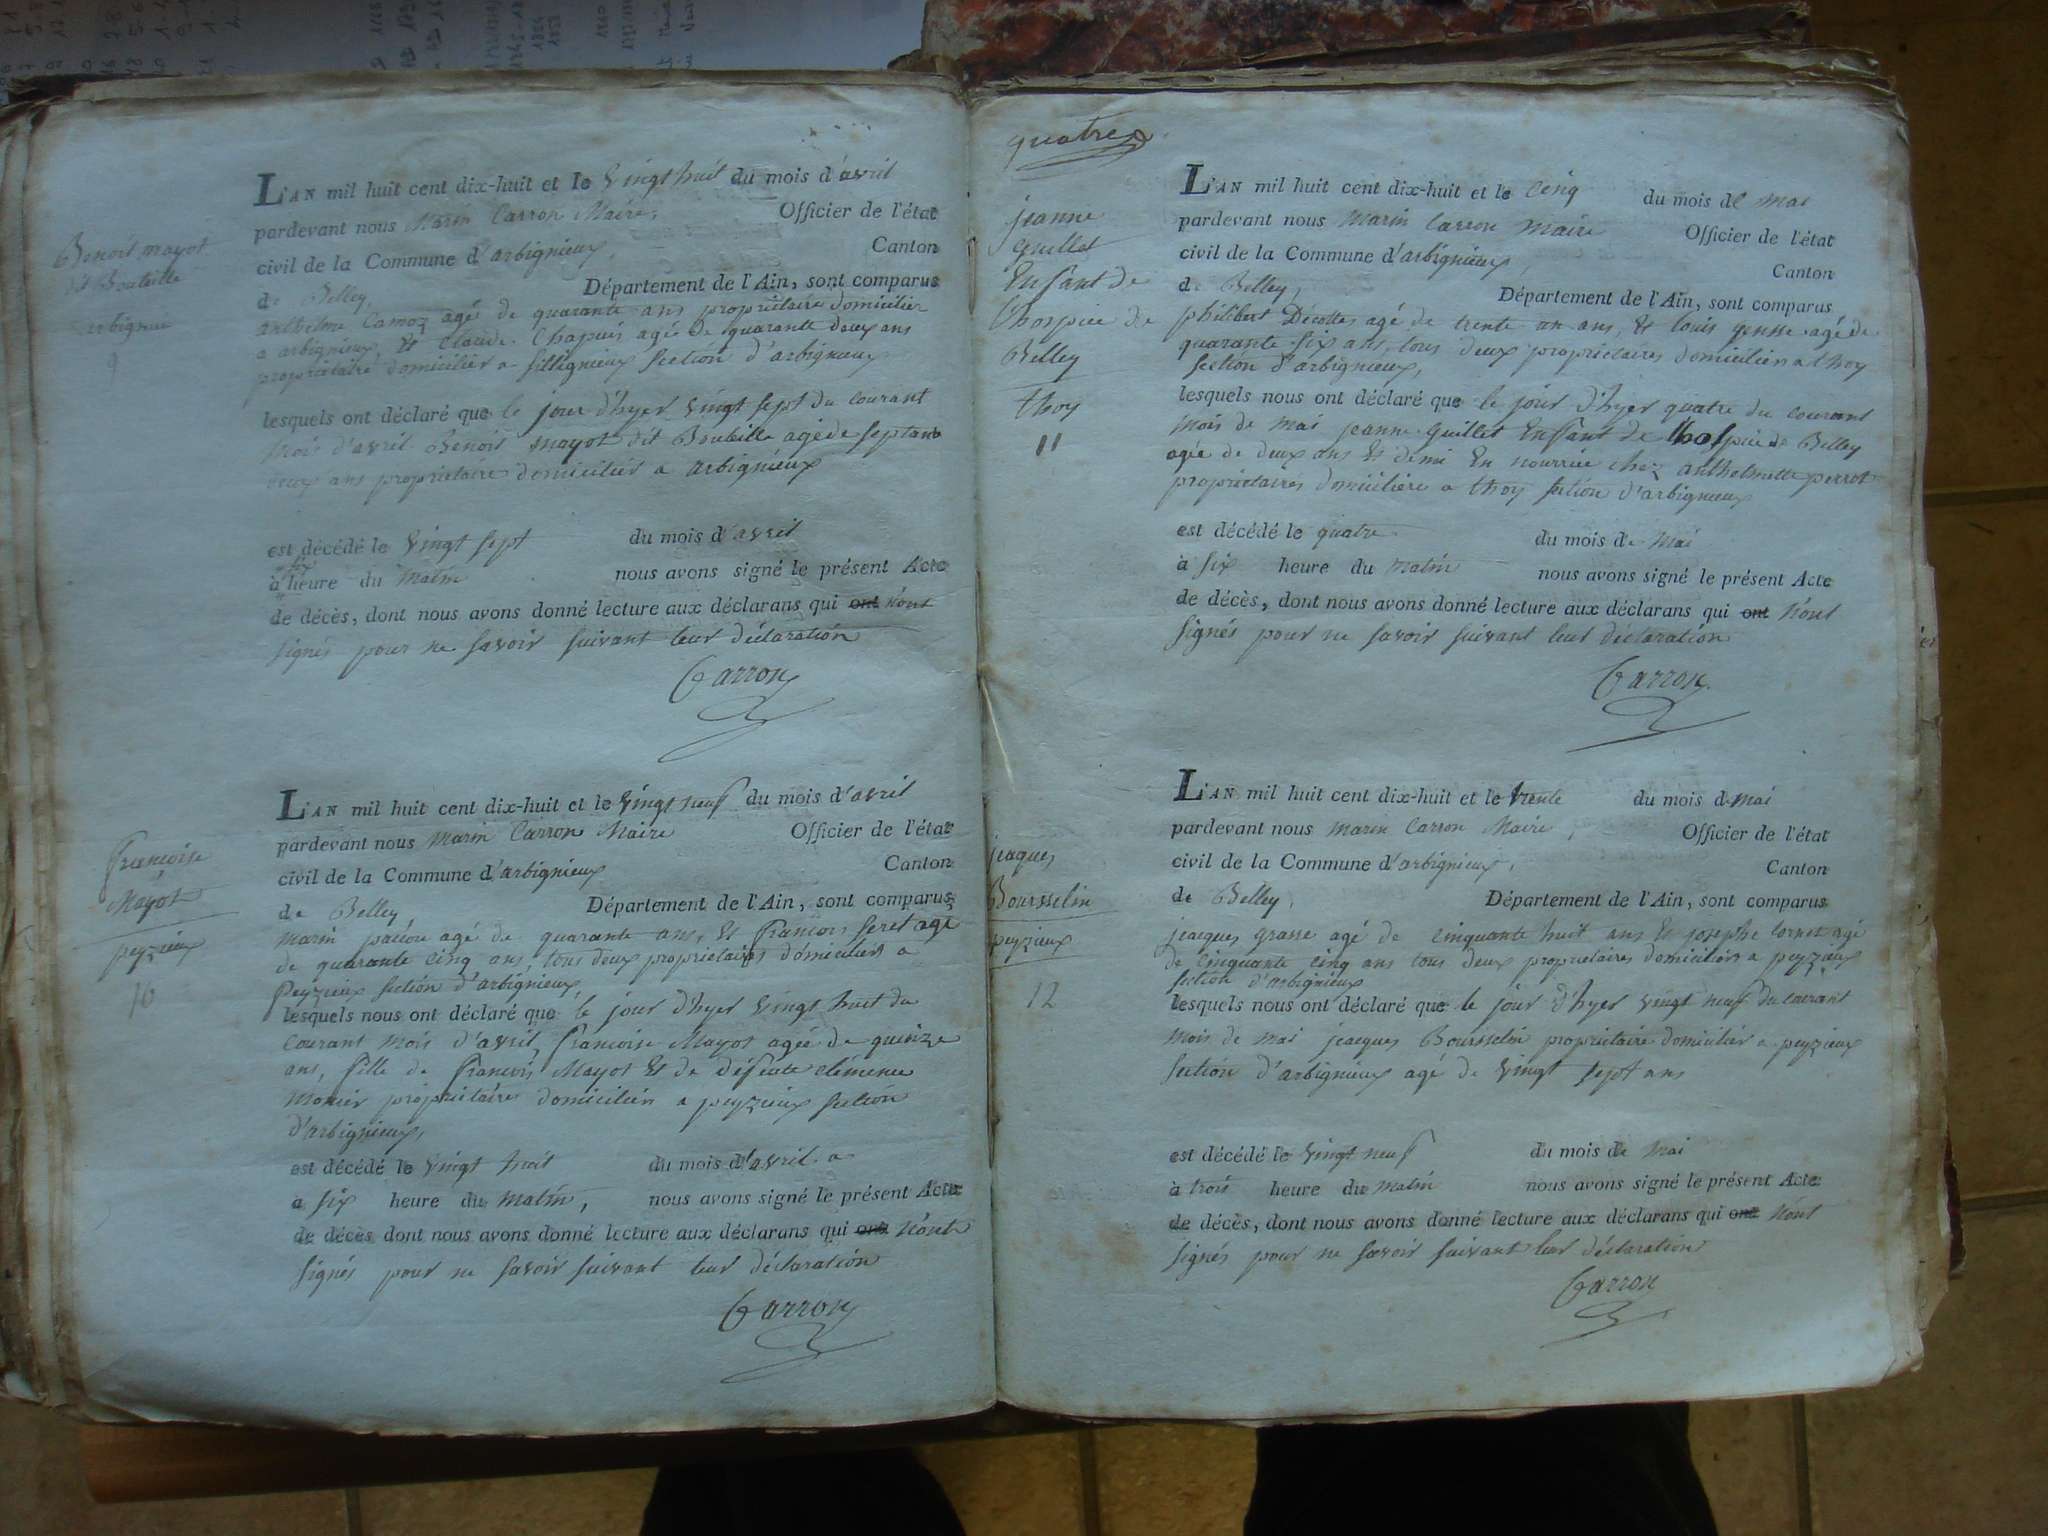 Benoit mayot
dit Boubille
arbignieu
9
L'AN mil huit cent dix-huit et le Vingt huit du mois d'avril
pardevant nous Marin Carron Maire, Officier de l'état
civil de la Commune d'arbignieux, Canton
de Belley, Département de l'Ain, sont comparus
anthelme Camoz agé de quarante ans propriétaire domicilier
a arbignieux, Et Claude Chapuis agé de quarante deux ans
propriétaire domicilier a Sillignieux Section d'arbignieux
lesquels ont déclaré que le jour d'hyer Vingt sept du courant
mois d'avril Benoit mayot dit Boubille agé de septante
deux ans propriétaire domicilier a arbignieux
est décédé le Vingt sept du mois d'avril
à six heure du matin nous avons signé le présent Acte
de décès, dont nous avons donné lecture aux déclarans qui ont n'ont
signés pour ne savoir suivant leur déclaration
Carron
francoise
Mayot
peyzieux
10
L'AN mil huit cent dix-huit et le Vingt neuf du mois d'avril
pardevant nous Marin Carron Maire Officier de l'état
civil de la Commune d'arbignieux Canton
de Belley, Département de l'Ain, sont comparus
marin agé de quarante ans, Et francois Seret agé
de quarante cinq ans tous deux propriétaires domiciliés a
Peyzieux Section d'arbignieux,
lesquels nous ont déclaré que le jour d'hyer Vingt huit du
courant mois d'avril, francoise Mayot agée de quinze
ans, fille de francois Mayot Et de défunte clémence
Monier propriétaires domiciliés a peyzieux Section
d'arbignieux,
est décédé le Vingt huit du mois d'avril a
à six heure du matin, nous avons signé le présent Acte
de décès dont nous avons donné lecture aux déclarans qui ont n'ont
signés pour ne savoir suivant leur déclaration
Carron
quatre
jeanne
Guillet
Enfant de
l'hospice de
Belley
thoy
11
L'AN mil huit cent dix-huit et le cinq du mois de mai
pardevant nous Marin Carron Maire Officier de l'état
civil de la Commune d'arbignieux, Canton
de Belley, Département de l'Ain, sont comparus
philibert Décottes agé de trente un ans, Et louis agé de
quarante six ans, tous deux propriétaires domiciliés a thoy
Section d'arbignieux,
lesquels nous ont déclaré que le jour d'hyer quatre du courant
mois de mai jeanne Guillet Enfant de l'hospice de Belley
agée de deux ans Et demi En nourrice chez anthelmette perrot
propriétaires domiciliere a thoy Section d'arbignieux
est décédé le quatre du mois de mai
à six heure du matin nous avons signé le présent Acte
de décès, dont nous avons donné lecture aux déclarans qui ont n'ont
signés pour ne savoir suivant leur déclaration
Carron
jeaques
Boursselin
peyzieux
12
L'AN mil huit cent dix-huit et le trente du mois de mai
pardevant nous Marin Carron Maire, Officier de l'état
civil de la Commune d'arbignieux, Canton
de Belley, Département de l'Ain, sont comparus
jeacques grasse agé de cinquante huit ans Et josephe Cornet agé
de cinquante cinq ans tous deux propriétaires domiciliés a peyzieux
Section d'arbignieux
lesquels nous ont déclaré que le jour d'hyer Vingt neuf du courant
mois de mai jeacques Boursselin propriétaire domicilier a peyzieux
Section d'arbignieux agé de Vingt sept ans
est décédé le Vingt neuf du mois de mai
à trois heure du matin nous avons signé le présent Acte
de décès, dont nous avons donné lecture aux déclarans qui ont n'ont
signés pour ne savoir suivant leur déclaration
Carron